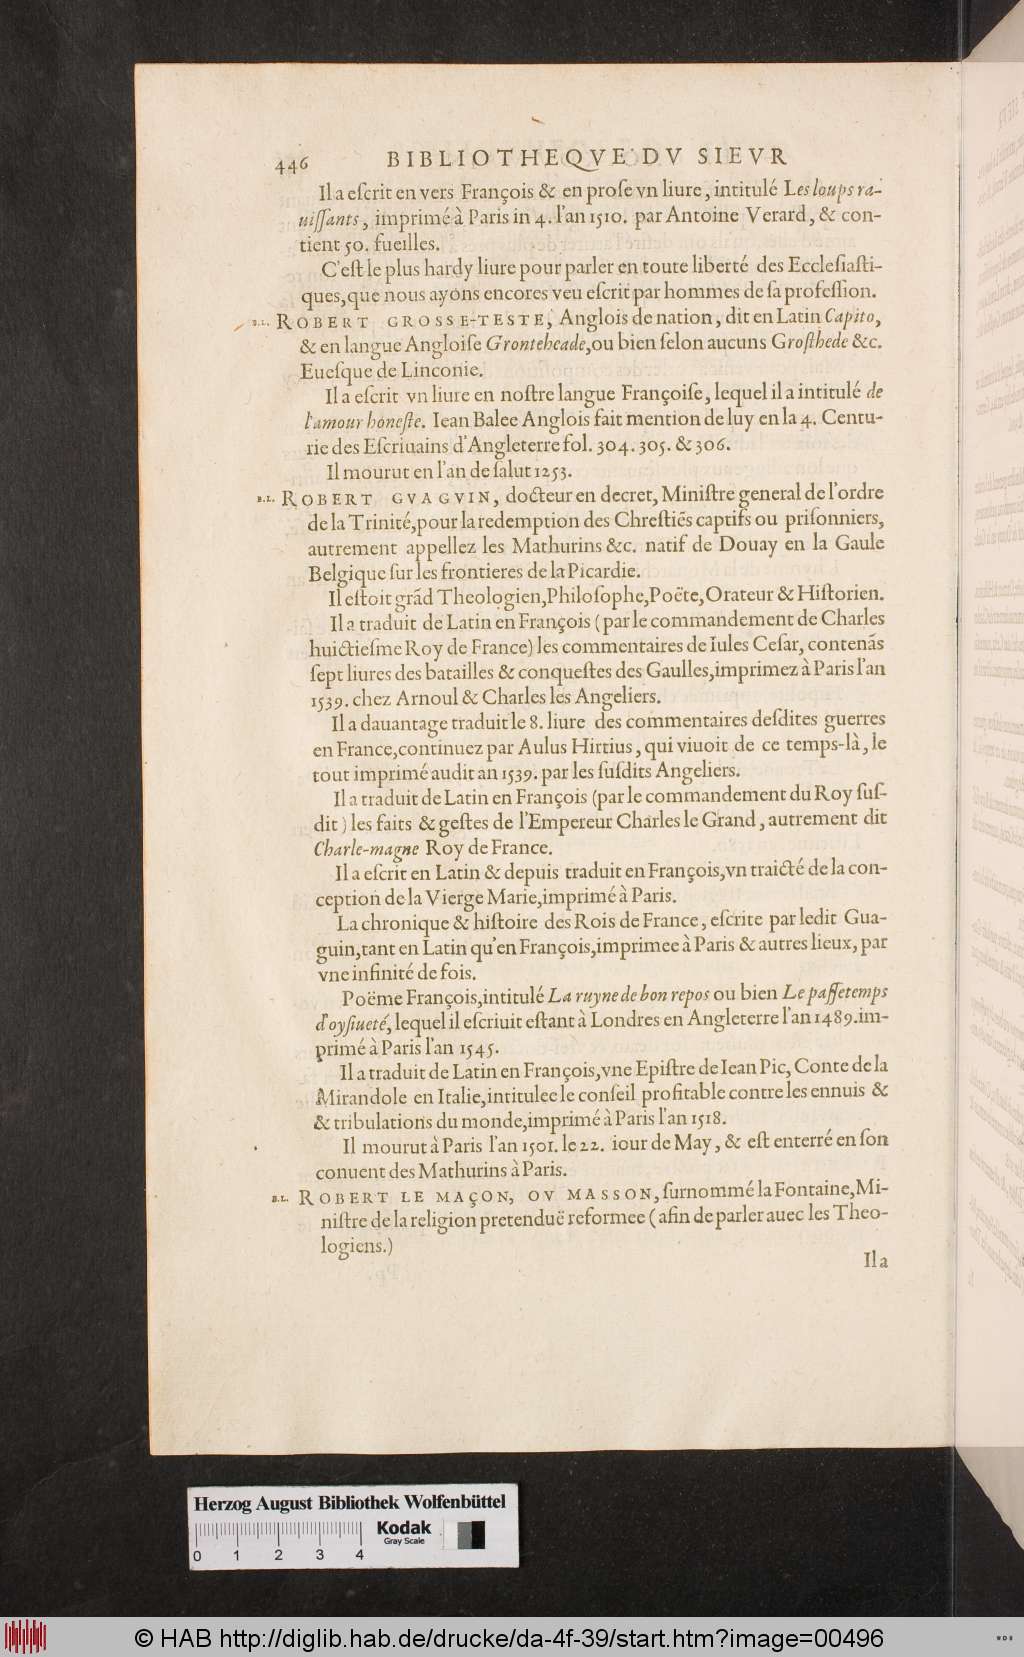 446 BIBLIOTHEQVE DV SIEVR
Il a eſcrit en vers François & en proſe vn liure, intitulé Les loups ra-
uiſſants, imprimé à Paris in 4. l'an 1510. par Antoine Verard, & con-
tient 50. fueilles.
C'eſt le plus hardy liure pour parler en toute liberté des Eccleſiaſti-
ques, que nous ayons encores veu eſcrit par hommes de ſa profeſſion.
B.L. ROBERT GROSSE-TESTE, Anglois de nation, dit en Latin Capito,
& en langue Angloiſe Gronteheade, ou bien ſelon aucuns Groſthede &c.
Eueſque de Linconie.
Il a eſcrit vn liure en noſtre langue Françoiſe, lequel il a intitulé de
l'amour honeſte. Iean Balee Anglois fait mention de luy en la 4. Centu-
rie des Eſcriuains d'Angleterre fol. 304. 305. & 306.
Il mourut en l'an de ſalut 1253.
B.L. ROBERT GVAGVIN, docteur en decret, Miniſtre general de l'ordre
de la Trinité, pour la redemption des Chreſtiẽs captifs ou priſonniers,
autrement appellez les Mathurins &c. natif de Douay en la Gaule
Belgique ſur les frontieres de la Picardie.
Il eſtoit grãd Theologien, Philoſophe, Poëte, Orateur & Hiſtorien.
Il a traduit de Latin en François (par le commandement de Charles
huictieſme Roy de France) les commentaires de Iules Ceſar, contenãs
ſept liures des batailles & conqueſtes des Gaulles, imprimez à Paris l'an
1539. chez Arnoul & Charles les Angeliers.
Il a dauantage traduit le 8. liure des commentaires deſdites guerres
en France, continuez par Aulus Hirtius, qui viuoit de ce temps-là, le
tout imprimé audit an 1539. par les ſuſdits Angeliers.
Il a traduit de Latin en François (par le commandement du Roy ſuſ-
dit) les faits & geſtes de l'Empereur Charles le Grand, autrement dit
Charle-magne Roy de France.
Il a eſcrit en Latin & depuis traduit en François, vn traicté de la con-
ception de la Vierge Marie, imprimé à Paris.
La chronique & hiſtoire des Rois de France, eſcrite par ledit Gua-
guin, tant en Latin qu'en François, imprimee à Paris & autres lieux, par
vne infinité de fois.
Poëme François, intitulé La ruyne de bon repos ou bien Le paſſetemps
d'oyſiueté, lequel il eſcriuit eſtant à Londres en Angleterre l'an 1489. im-
primé à Paris l'an 1545.
Il a traduit de Latin en François, vne Epiſtre de Iean Pic, Conte de la
Mirandole en Italie, intitulee le conſeil profitable contre les ennuis &
& tribulations du monde, imprimé à Paris l'an 1518.
Il mourut à Paris l'an 1501. le 22. iour de May, & eſt enterré en ſon
conuent des Mathurins à Paris.
B.L. ROBERT LE MAÇON, OV MASSON, ſurnommé la Fontaine, Mi-
niſtre de la religion pretenduë reformee (afin de parler auec les Theo-
logiens.)
Il a
Herzog August Bibliothek Wolfenbüttel
Kodak
Gray Scale
0 1 2 3 4
© HAB http://diglib.hab.de/drucke/da-4f-39/start.htm?image=00496